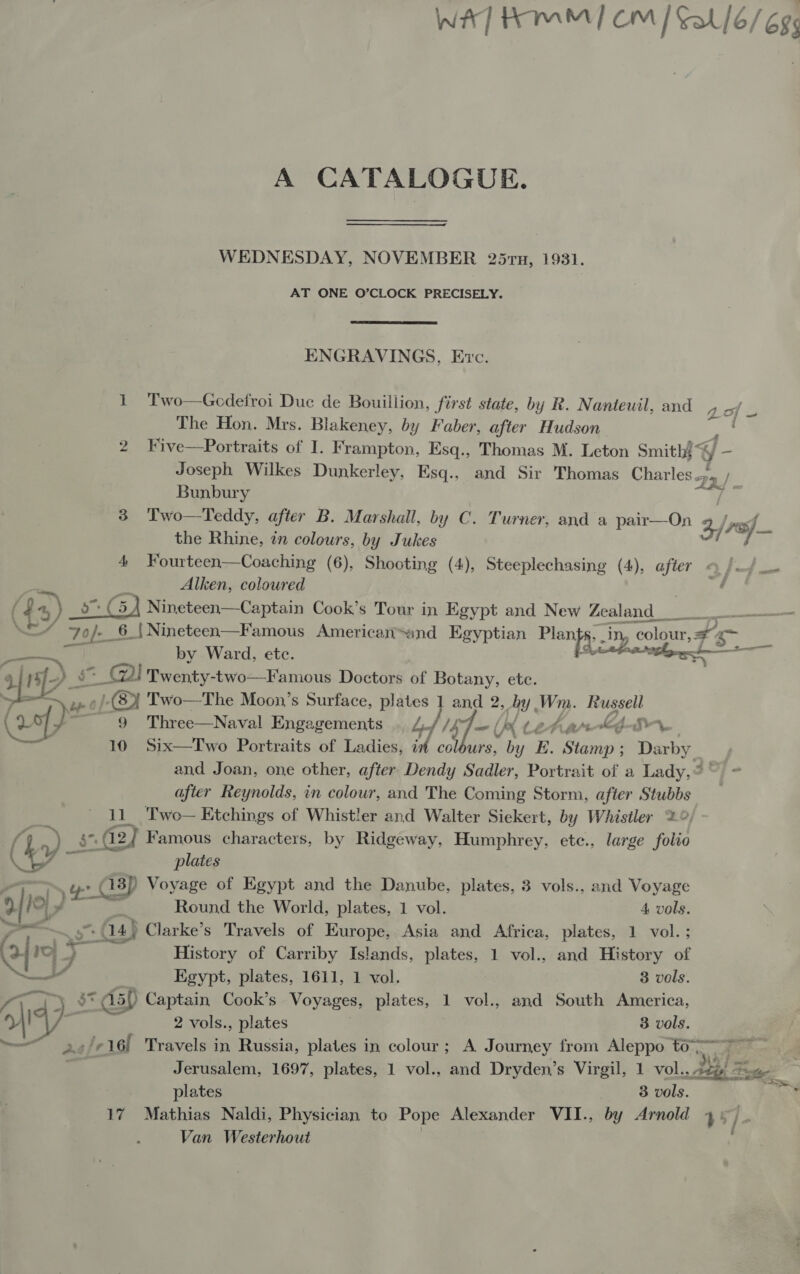 WA/HMM/CM/Sal/6/689
A CATALOGUE.
WEDNESDAY, NOVEMBER 25TH, 1931.
AT ONE O'CLOCK PRECISELY.
ENGRAVINGS, ETC.
1 Two—Godefroi Duc de Bouillion, first state, by R. Nanteuil, and
The Hon. Mrs. Blakeney, by Faber, after Hudson
2 Five—Portraits of I. Frampton, Esq., Thomas M. Leton Smith,
Joseph Wilkes Dunkerley, Esq., and Sir Thomas Charles
Bunbury
3 Two—Teddy, after B. Marshall, by C. Turner, and a pair—On
the Rhine, in colours, by Jukes
4 Fourteen—Coaching (6), Shooting (4), Steeplechasing (4), after
Alken, coloured
5 Nineteen—Captain Cook's Tour in Egypt and New Zealand
70/- 6 Nineteen—Famous American and Egyptian Plants, in colour,
by Ward, etc.
7 Twenty-two—Famous Doctors of Botany, etc.
8 Two—The Moon's Surface, plates 1 and 2, by Wm. Russell
9 Three—Naval Engagements
10 Six—Two Portraits of Ladies, in colours, by E. Stamp; Darby
and Joan, one other, after Dendy Sadler, Portrait of a Lady,
after Reynolds, in colour, and The Coming Storm, after Stubbs
11 Two—Etchings of Whistler and Walter Siekert, by Whistler 20/-
12 Famous characters, by Ridgeway, Humphrey, etc., large folio
plates
13 Voyage of Egypt and the Danube, plates, 3 vols., and Voyage
Round the World, plates, 1 vol. 4 vols.
14 Clarke's Travels of Europe, Asia and Africa, plates, 1 vol.;
History of Carriby Islands, plates, 1 vol., and History of
Egypt, plates, 1611, 1 vol. 3 vols.
15 Captain Cook's Voyages, plates, 1 vol., and South America,
2 vols., plates 3 vols.
16 Travels in Russia, plates in colour; A Journey from Aleppo to
Jerusalem, 1697, plates, 1 vol., and Dryden's Virgil, 1 vol.,
plates 3 vols.
17 Mathias Naldi, Physician to Pope Alexander VII., by Arnold
Van Westerhout